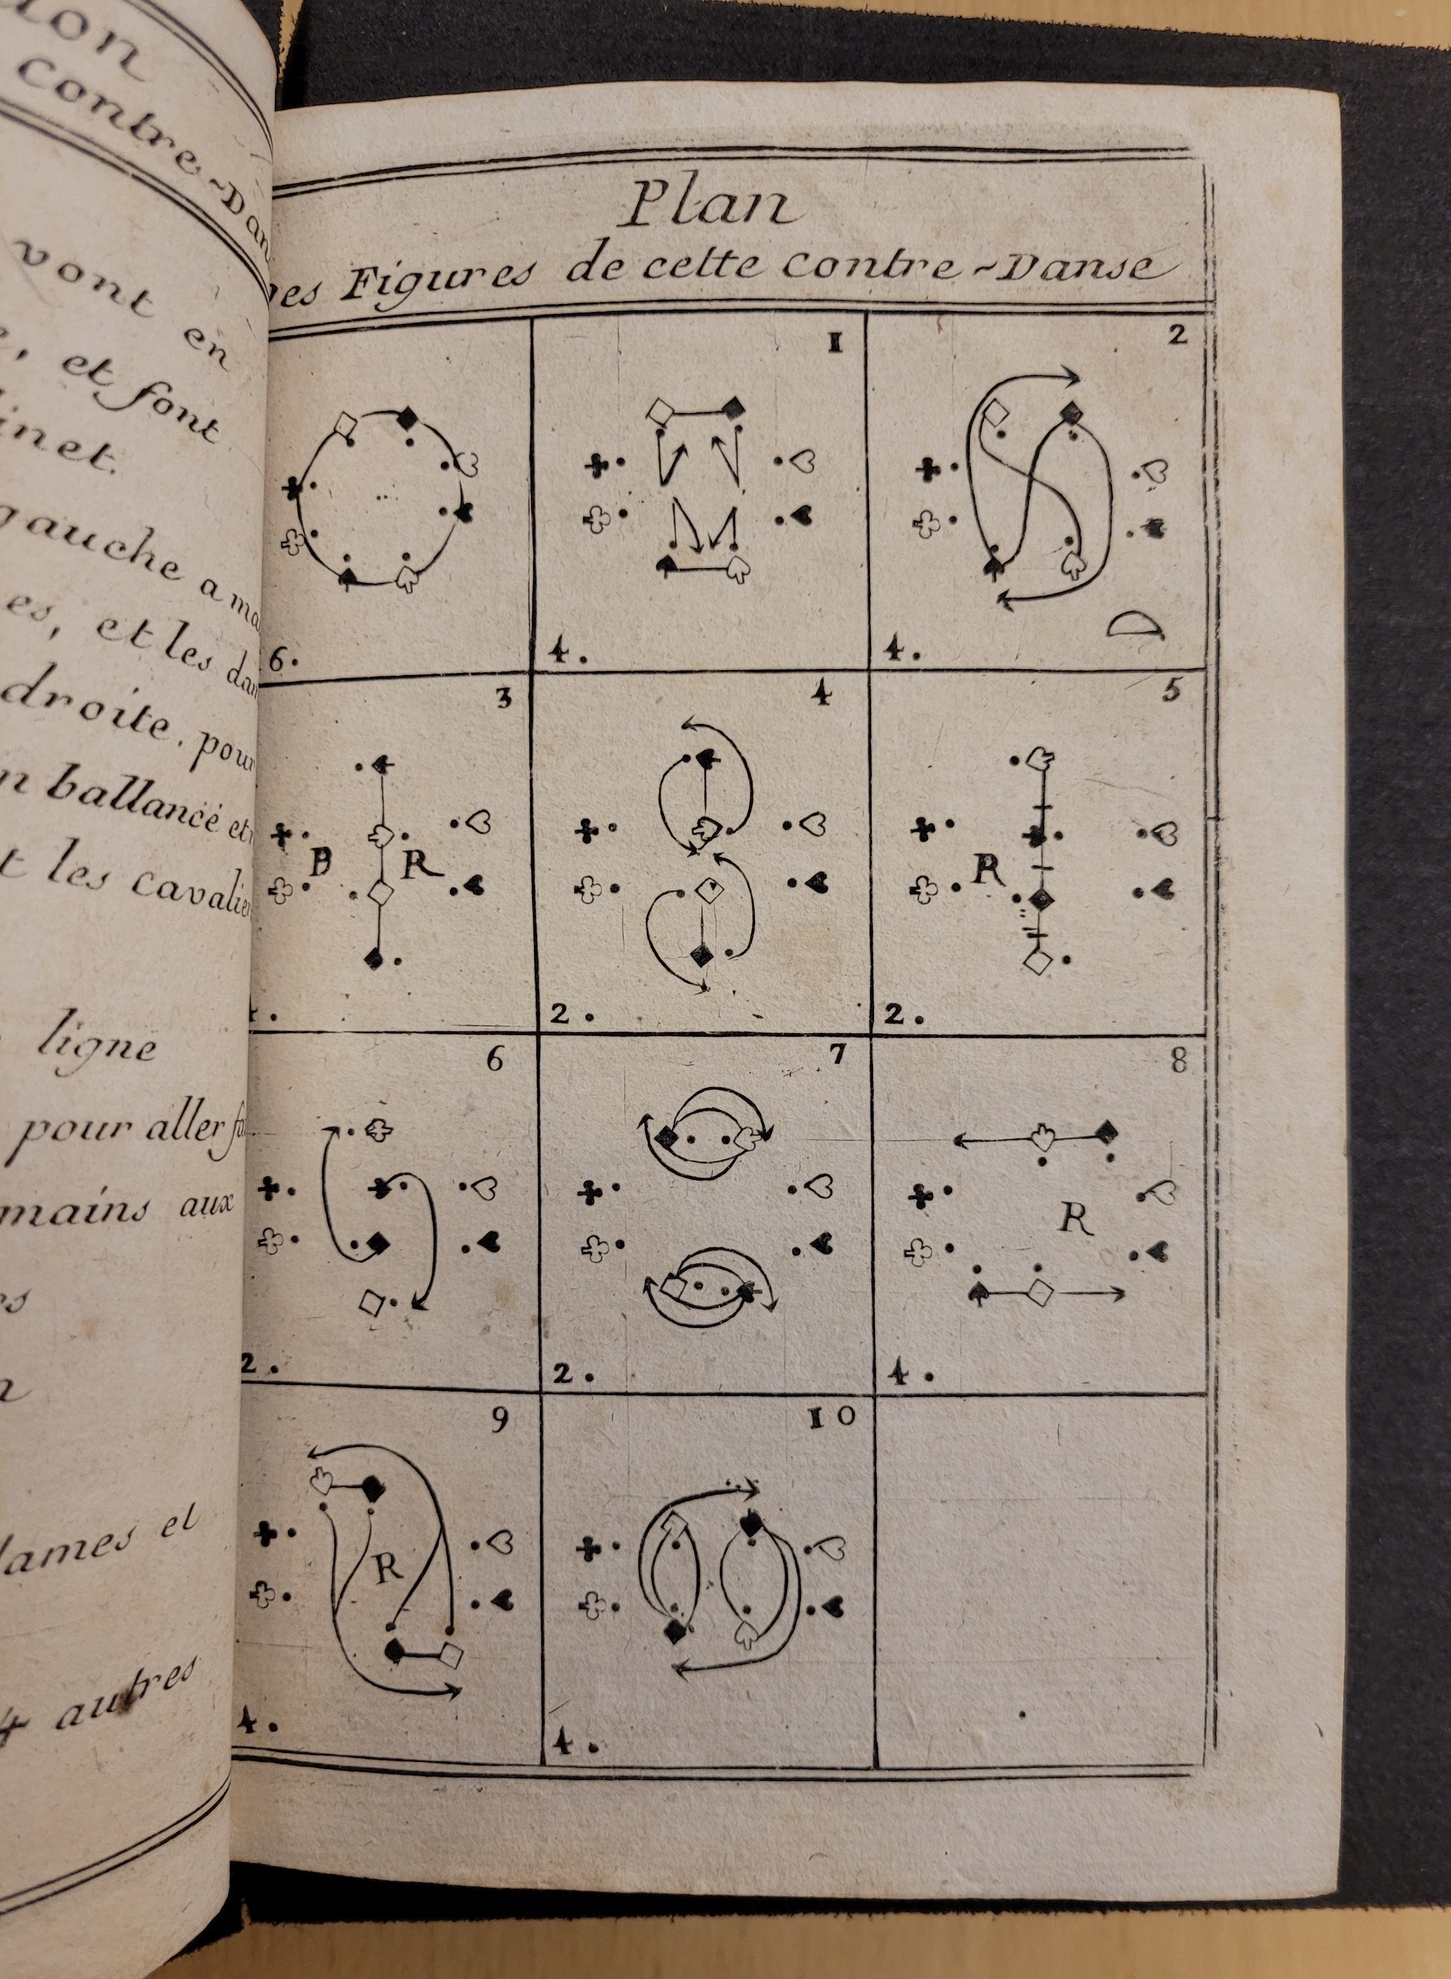 contre-Dan
vont en
et font
gauche a
es, et les
droite. pour
ballancé et
t les cavalier
ligne
pour aller
mains aux
dames et
4 autres
Plan
Figures de cette Contre-Danse
6.
1
4.
2
4.
3
B R
4
2.
5
R
2.
6
2.
7
2.
8
R
4.
9
R
4.
10
4.